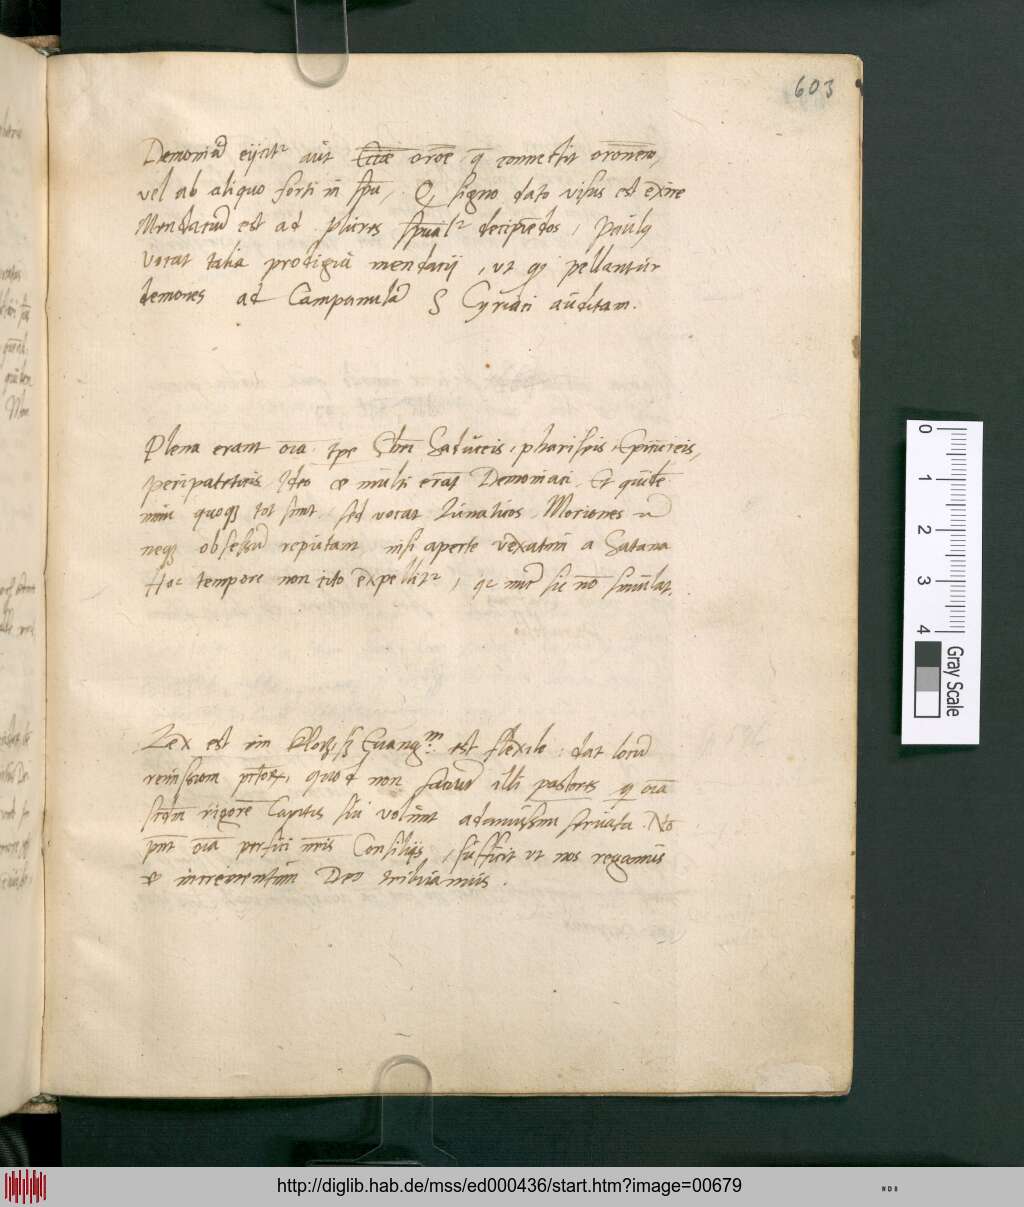 603
Demoniũ eijcitr aut Ecciæ oroe, q̃ connectit oronem,
vel ab aliquo forti in spũ, Q, signo dato visus est exire
Mendaciũ est ad plures spũalr decipiẽdos, Paulq
vocat talia prodigia mendacij, ut qz pellantur
demones ad Campanulã S Cyriaci auditam.
Plena erant oĩa tpe Saduceis, phariseis, Epicureis,
peripateticis Ideo & multi erãt Demoniaci. Et
quoqz tot sunt, sed vocat Lunaticos, Moriones
neqz obsessũ reputant nisi aperte vexatum a Satana
Hoc tempore non cito expellitr, qa nũc sic nõ simulat.
Lex est sz Euangm est flexile: dat locũ
remissioni pctorz, quod non faciũt illi pastores q oĩa
scdm rigorẽ Capitis sui volunt adamussim servata. Nõ
pnt oĩa perfici nris Consilijs, sufficit ut nos regamus
& incrementum Deo tribuamus.
0
1
2
3
4
Gray Scale
http://diglib.hab.de/mss/ed000436/start.htm?image=00679